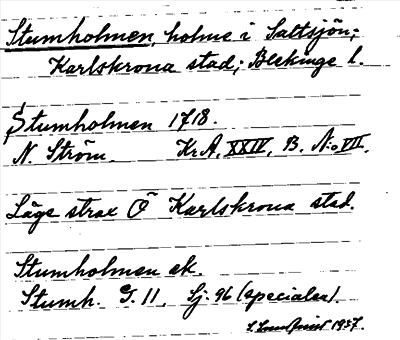 Stumholmen, holme i Saltsjön;
Karlskrona stad; Blekinge l.
Stumholmen 1718.
N. Ström. Kr A, XXIV, B. N:o VII.
Läge strax Ö Karlskrona stad.
Stumholmen ek.
Stumh. G. 11, Sj: 96 (specialen).
1937.